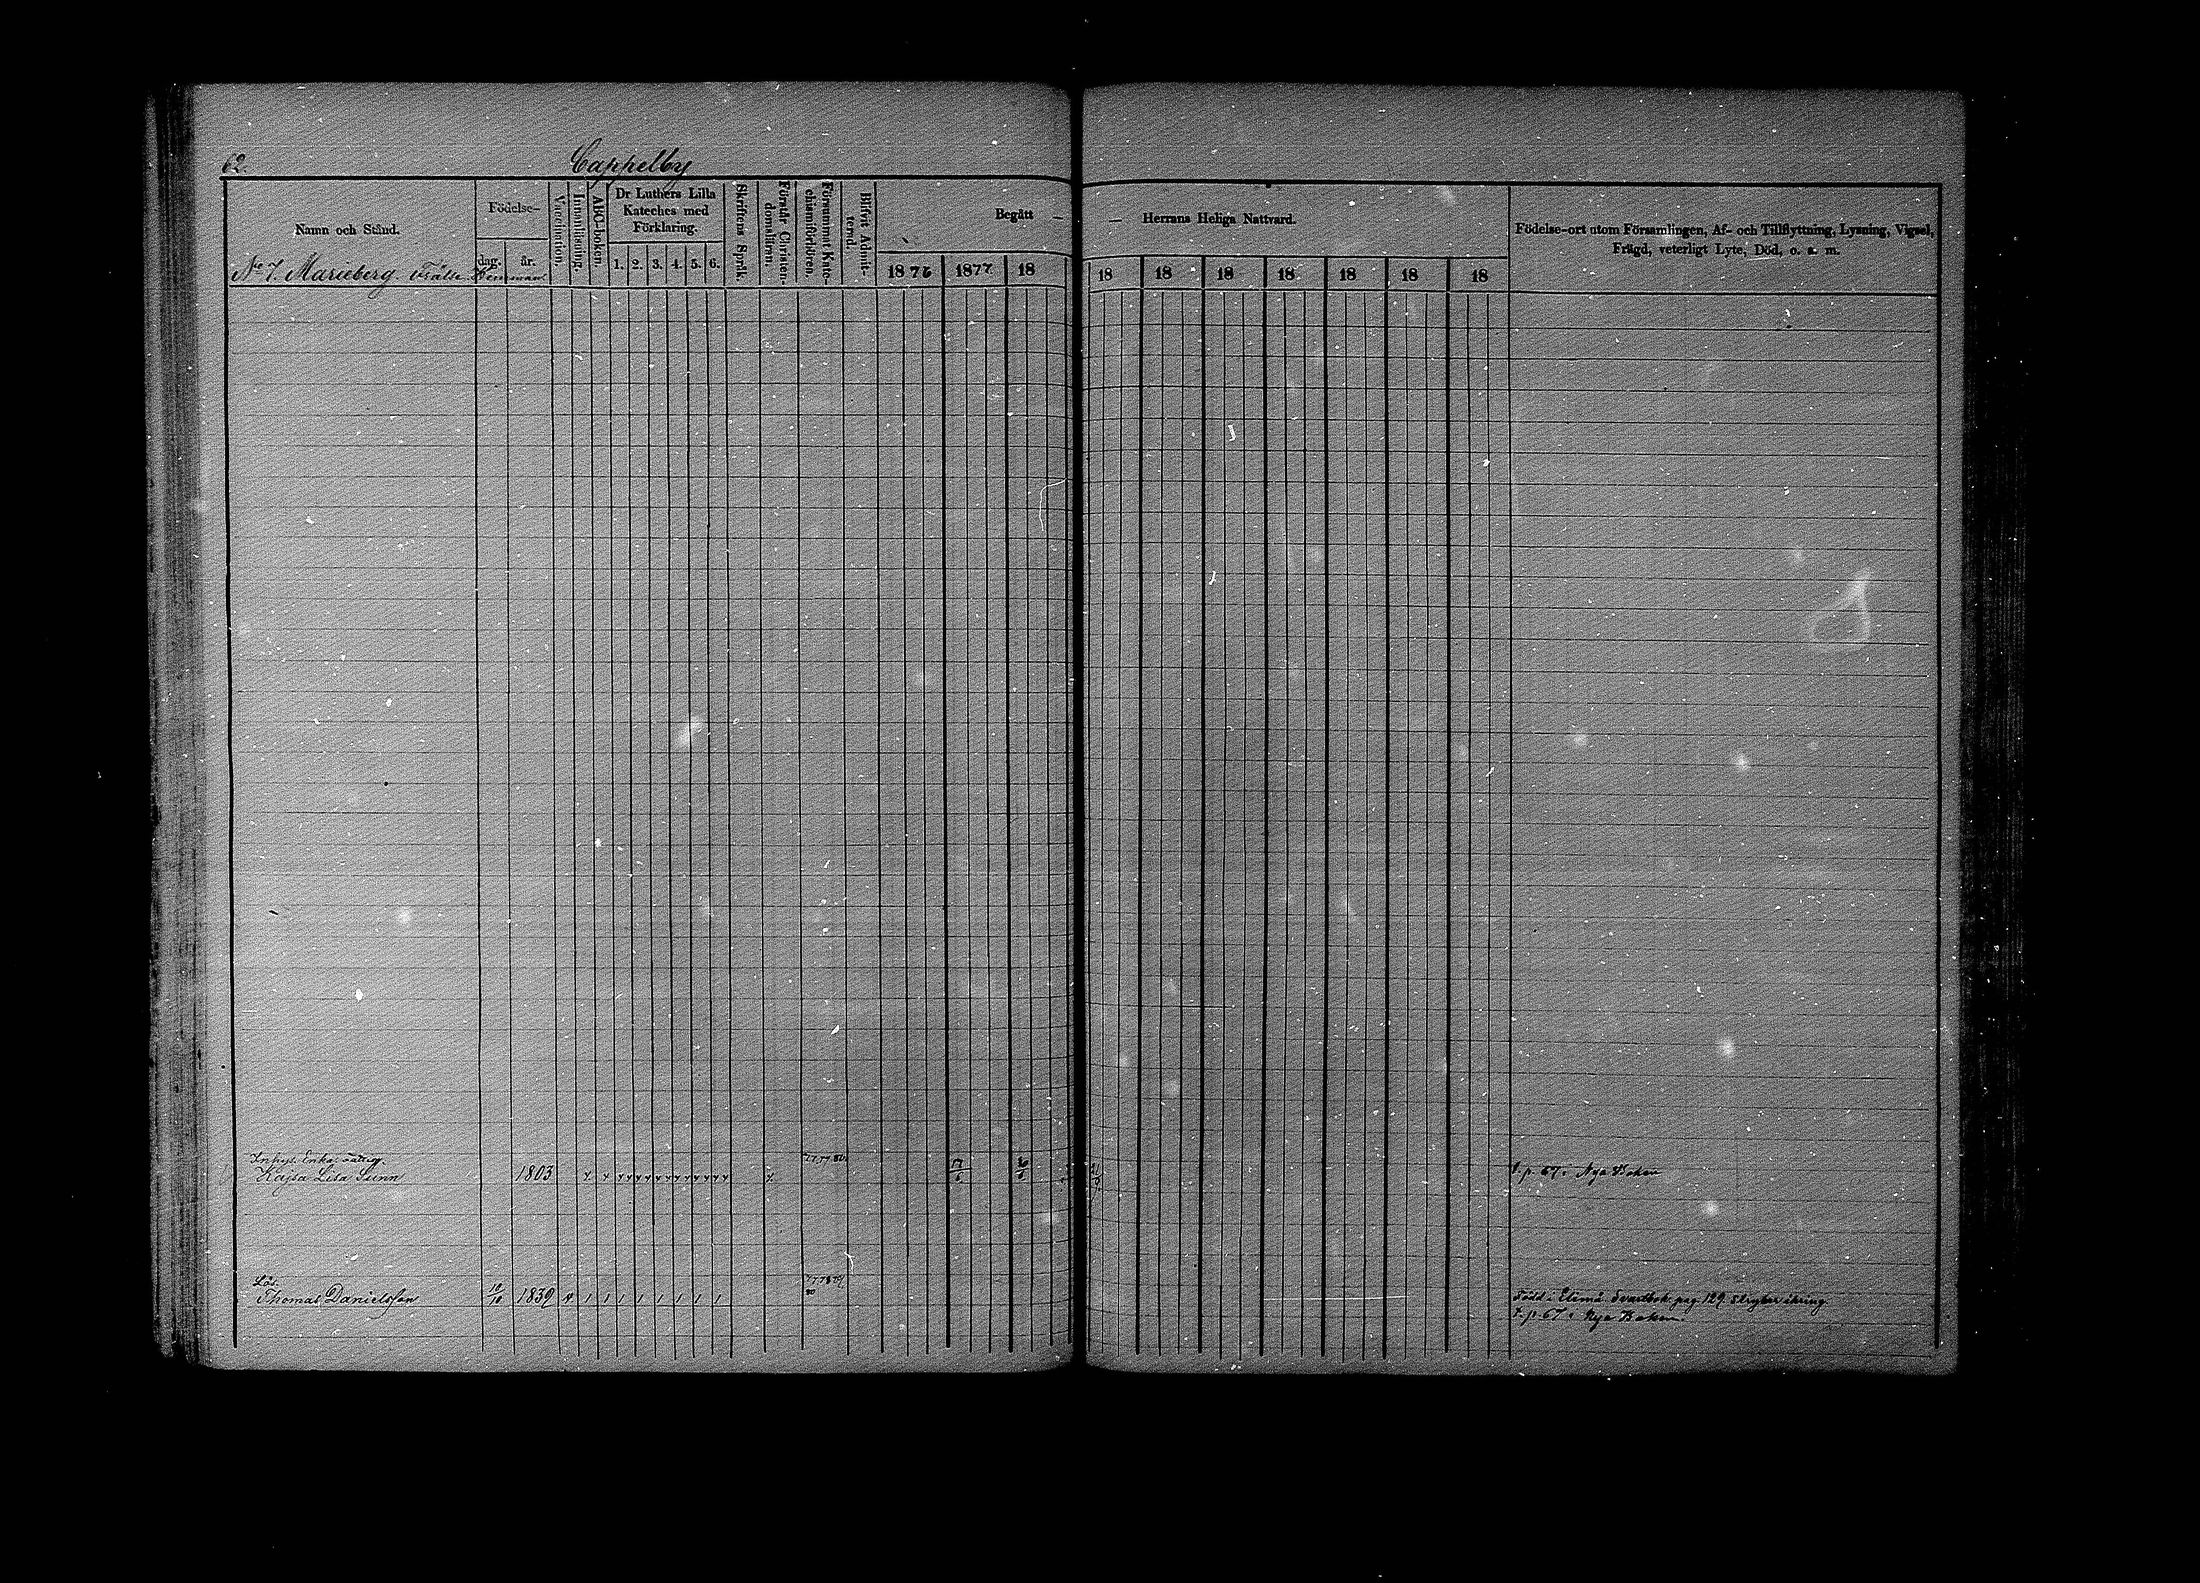 62.
Cappelby
Namn och Stånd.
Födelse-
dag.
år.
Vaccination.
Innanläsning.
ABC-boken.
Dr Luthers Lilla
Kateches med
Förklaring.
1. 2. 3. 4. 5. 6.
Skriftens Språk.
Förstår Christen-
domsläran.
Försummat Kate-
chismiförhören.
Blifvit Admit-
terad.
Begått —
— Herrans Heliga Nattvard.
1876 1877 18
18 18 18 18 18 18 18
Födelse-ort utom Församlingen, Af- och Tillflyttning, Lysning, Vigsel,
Frägd, veterligt Lyte, Död, o. s. m.
No 7. Marieberg Hemman
Kajsa Lisa 1803
t. p. 67 i Nya Boken
Lös.
Thomas Danielsson 1839
Född i Elimä. Svartbok pag. 129. stryker ikring.
t. p. 67 i Nya Boken.